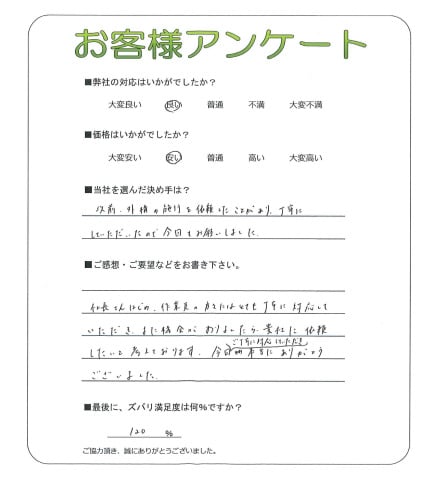 お客様アンケート
■弊社の対応はいかがでしたか?
大変良い 良い 普通 不満 大変不満
■価格はいかがでしたか?
大変安い 安い 普通 高い 大変高い
■当社を選んだ決め手は?
以前、外構の施行を依頼したことがあり、丁寧に
していただいたので今回もお願いしました。
■ご感想・ご要望などをお書き下さい。
社長さんはじめ、作業員の方々にはとても丁寧に対応して
いただき、また機会がありましたら、貴社に依頼
したいと考えております。今回
ご丁寧に対応していただき
本当にありがとう
ございました。
■最後に、ズバリ満足度は何%ですか?
120 %
ご協力頂き、誠にありがとうございました。